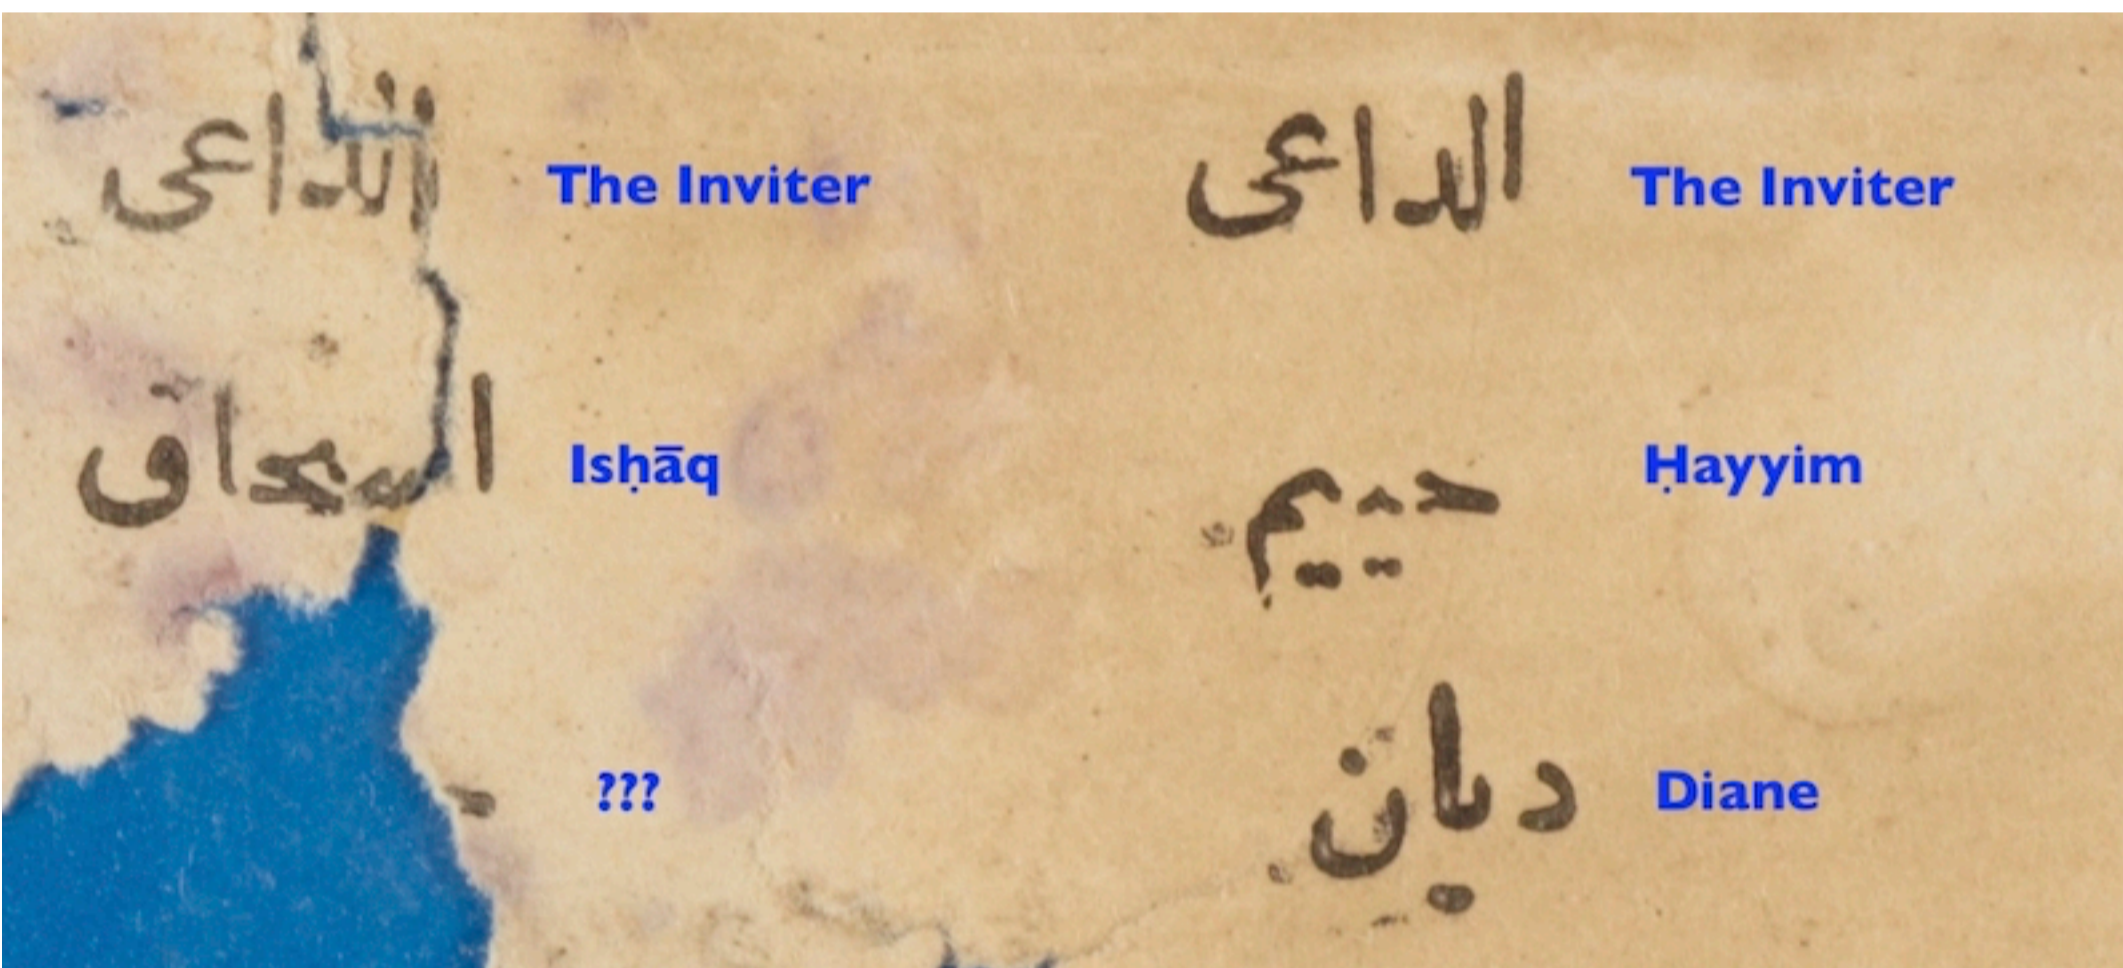 الداعى The Inviter
اسحاق Isḥāq
???
الداعى The Inviter
حييم Ḥayyim
ديان Diane